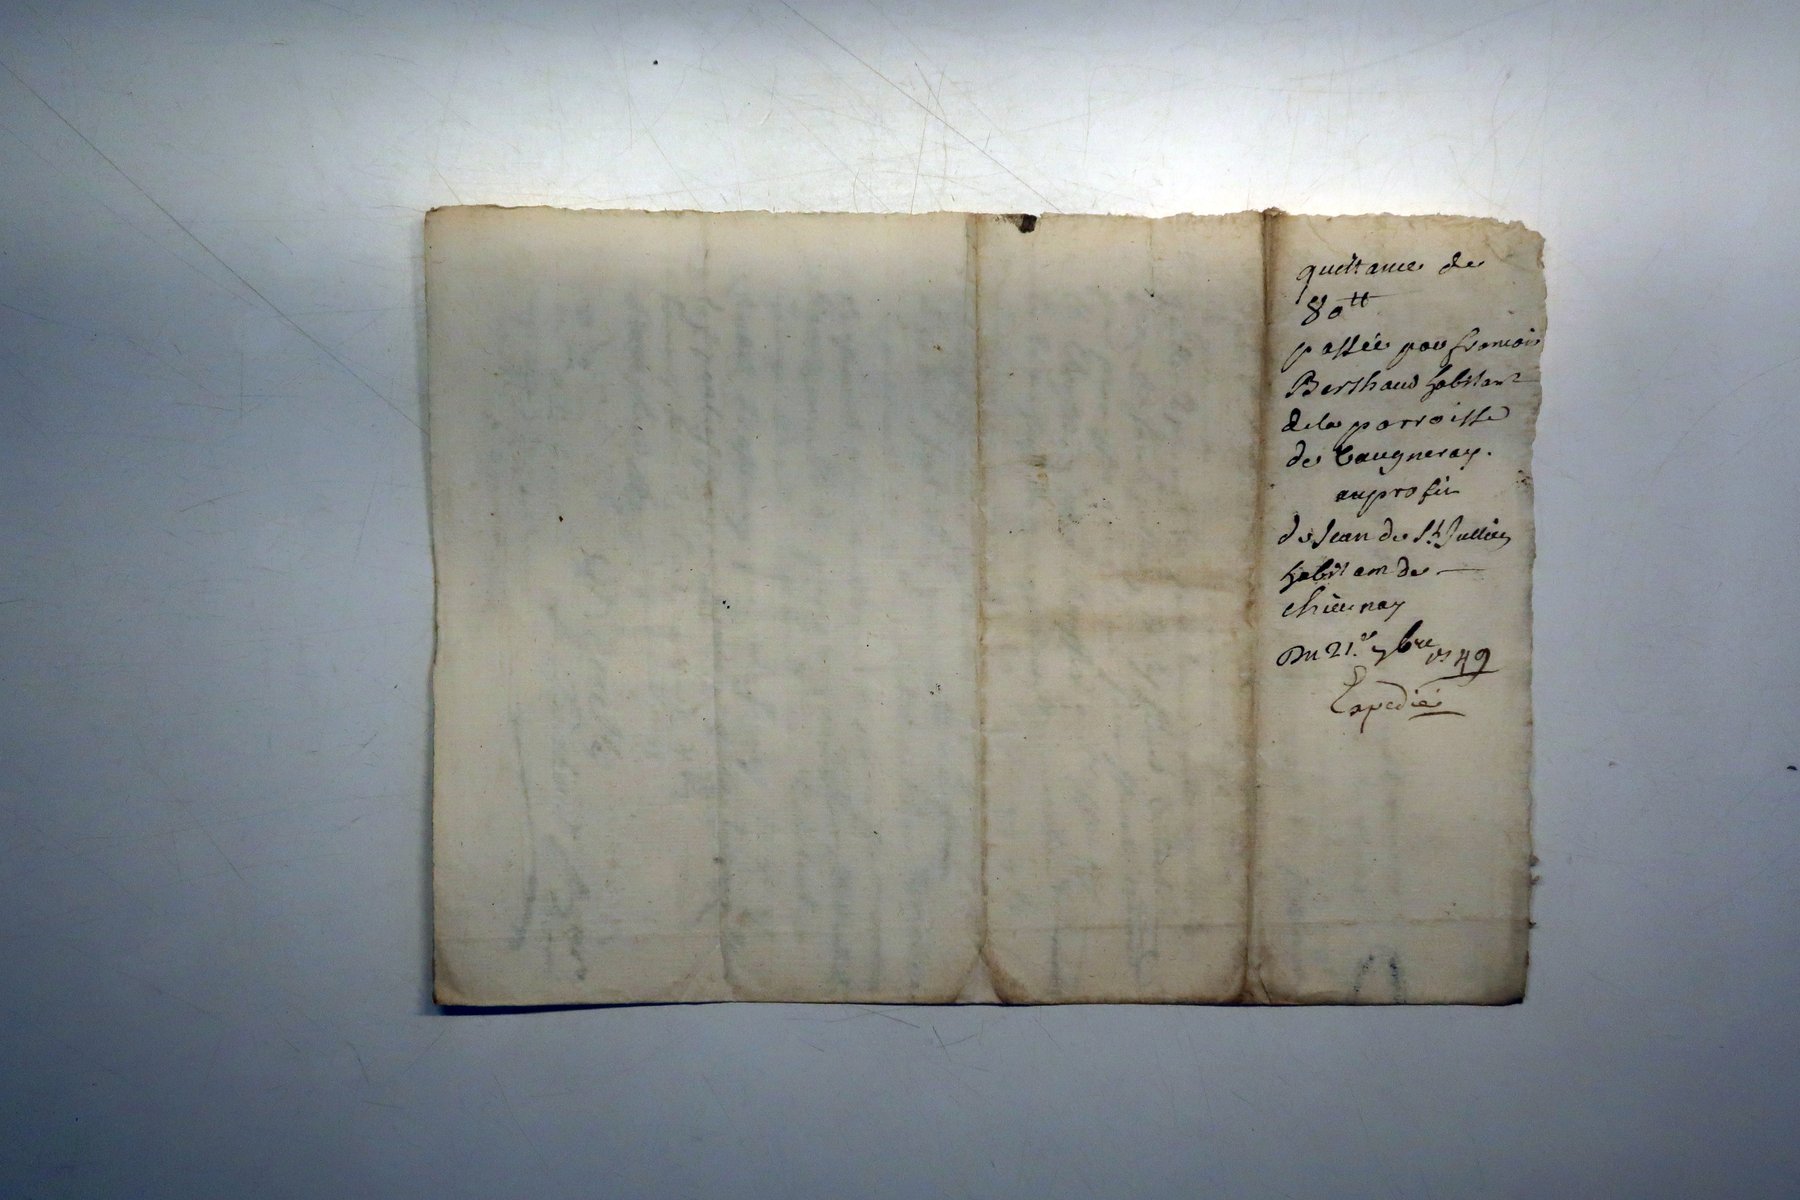 quittance de
80tt
passée par francois
Berthaud habitant
de la parroisse
de Vaugneray.
au profit
de Jean de St Jullien
habitant de
chieunay
Du 21e 7bre 1749
Expediée